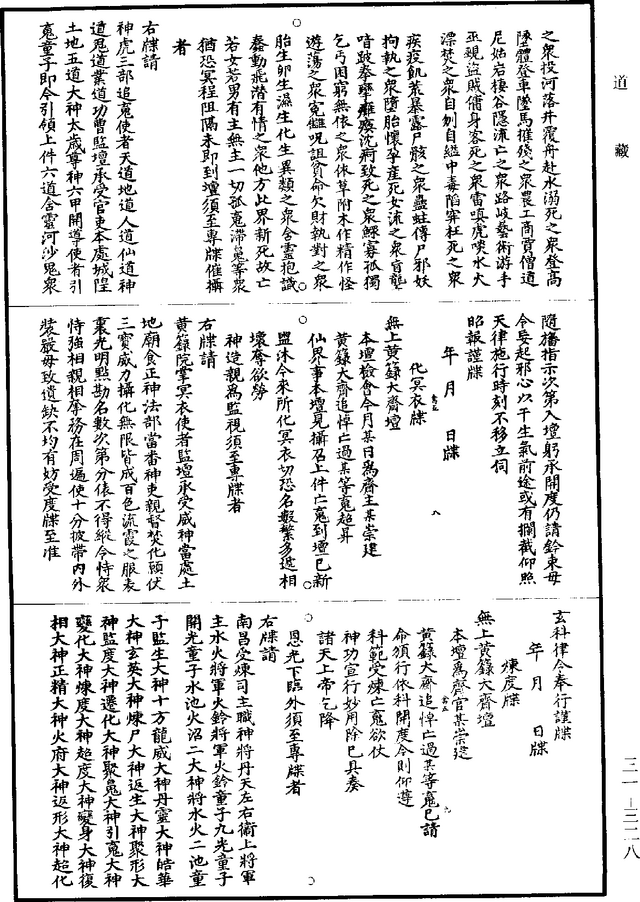 道藏
之衆投河落井覆舟赴水溺死之衆登高
墜體登車墜馬摧殘之衆農工商賈僧道
尼姑岩棲谷隱流亡之衆路岐藝術游手
巫覡盜賊傭身客死之衆雷嗔虎啖水火
漂焚之衆自刎自縊中毒陷穽枉死之衆
疾疫飢荒暴露尸骸之衆蠱蛀傳尸邪妖
拘執之衆墮胎懷孕產死女流之衆盲聾
喑跛拳攣癰瘓沉痾致死之衆鰥寡孤獨
乞丐困窮無依之衆依草附木作精作怪
遊蕩之衆寃讎呪詛負命欠財執對之衆
胎生卵生濕生化生異類之衆含靈抱識
蠢動飛潛有情之衆他方此界新死故亡
若女若男有主無主一切孤寃滯魄等衆
猶恐冥程阻隔未即到壇須至專牒催攝
者
右牒請
神虎三部追魂使者天道地道人道仙道神
道鬼道業道功曹監壇承受官吏本處城隍
土地五道大神太歲尊神六甲開導使者引
魂童子即令引領上件六道含靈河沙鬼衆
隨旛指示次第入壇躬承開度仍請鈐束毋
令妄起邪心以干生氣前途或有攔截仰照
天律施行時刻不移立伺
昭報謹牒
年 月 日牒
化冥衣牒
無上黃籙大齋壇
本壇檢會今月某日爲齋主某崇建
黃籙大齋追悼亡過某等魂超昇
仙界事本壇見攝召上件亡魂到壇已新
盟沐今來所化冥衣切恐名數繁多遞相
壞奪欲勞
神造親爲監視須至專牒者
右牒請
黃籙院掌冥衣使者監壇承受威神當處土
地廟食正神法部當番神吏親督焚化願伏
三寶威力攝化無限皆成百色流霞之服表
裏光明點勘名數次第分俵不得縱令恃衆
恃強相親相拏務在周遍使十分披帶內外
裝嚴毋致遺缺不均有妨受度牒至准
玄科律令奉行謹牒
年 月 日牒
煉度牒
無上黃籙大齋壇
本壇爲齋官某崇建
黃籙大齋追悼亡過某等魂已請
命須行依科開度今則仰遵
科範受煉亡魂欲仗
神功宣行妙用除已具奏
諸天上帝乞降
恩光下臨外須至專牒者
右牒請
南昌受煉司主職神將丹天左右衞上將軍
主水火將軍火鈴將軍火鈴童子九光童子
開光童子水池火沼二大神將水火二池童
子監生大神十方龍威大神丹靈大神皓華
大神玄英大神煉尸大神返生大神聚形大
神監度大神遷化大神聚魂大神引魂大神
變化大神煉度大神超度大神變身大神復
相大神正精大神火府大神返形大神超化
三一－三二八